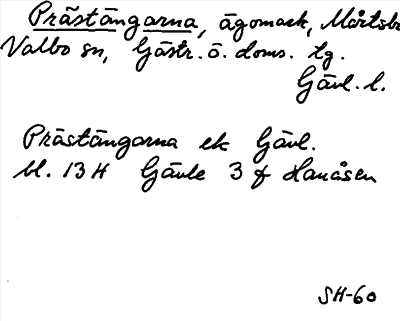 Prästängarna, ägomark, Mårtsbo
Valbo sn, Gästr. ö. doms. tg.
Gävl. l.
Prästängarna ek Gävl.
Bl. 13 H Gävle 3 f Hanåsen
SH-60